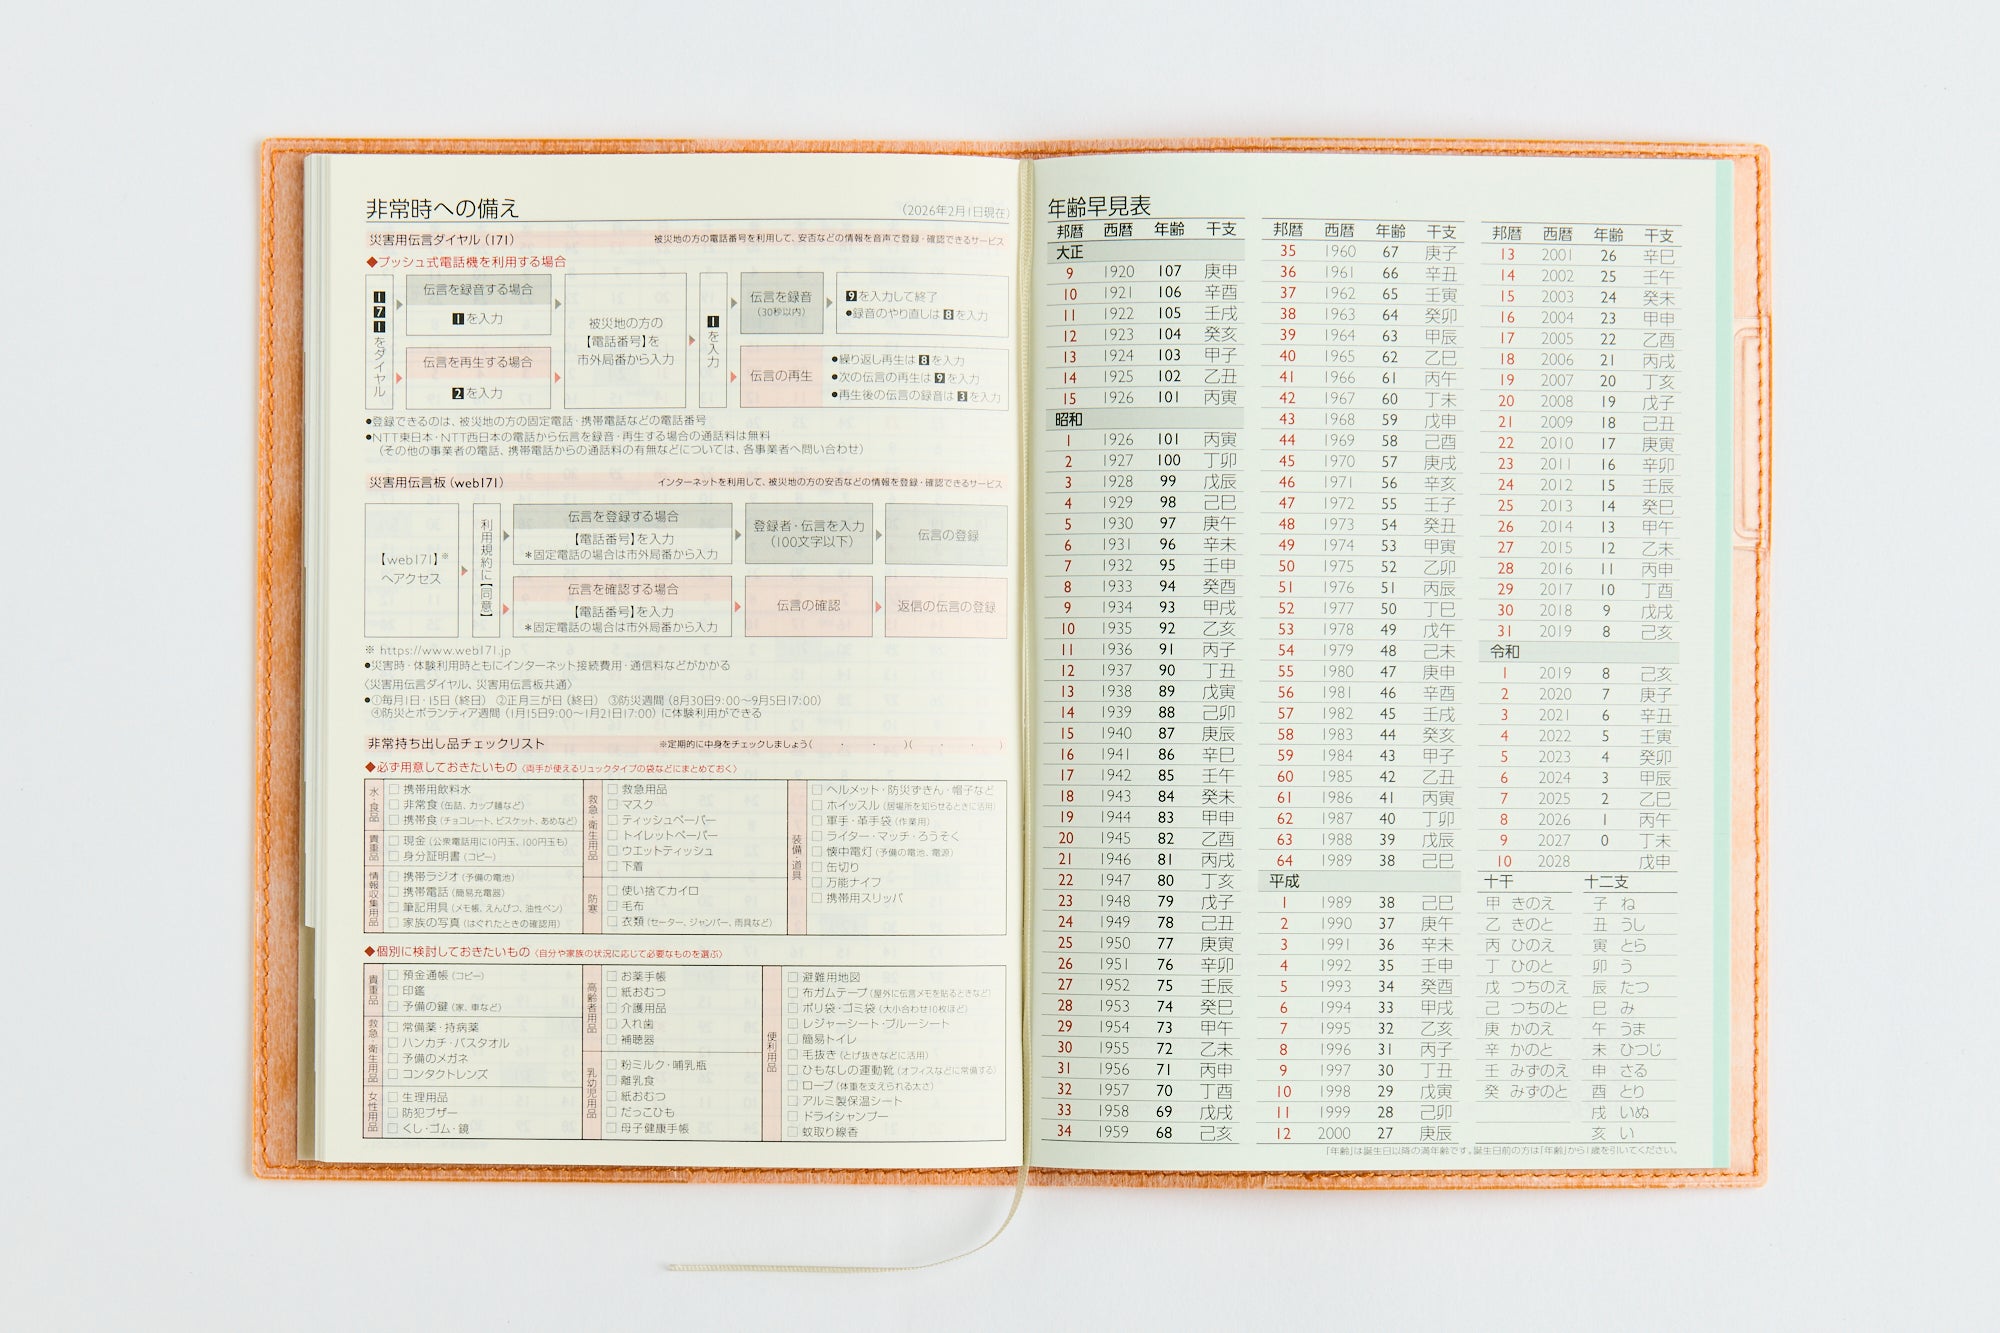 非常時への備え
（2026年2月1日現在）
災害用伝言ダイヤル（171）
被災地の方の電話番号を利用して、安否などの情報を音声で登録・確認できるサービス
◆プッシュ式電話機を利用する場合
171をダイヤル
伝言を録音する場合
1を入力
伝言を再生する場合
2を入力
被災地の方の
【電話番号】を
市外局番から入力
1を入力
伝言を録音
（30秒以内）
9を入力して終了
●録音のやり直しは8を入力
伝言の再生
●繰り返し再生は8を入力
●次の伝言の再生は9を入力
●再生後の伝言の録音は3を入力
●登録できるのは、被災地の方の固定電話・携帯電話などの電話番号
●NTT東日本・NTT西日本の電話から伝言を録音・再生する場合の通話料は無料
（その他の事業者の電話、携帯電話からの通話料の有無などについては、各事業者へ問い合わせ）
災害用伝言板（web171）
インターネットを利用して、被災地の方の安否などの情報を登録・確認できるサービス
【web171】※
へアクセス
利用規約に【同意】
伝言を登録する場合
【電話番号】を入力
＊固定電話の場合は市外局番から入力
登録者・伝言を入力
（100文字以下）
伝言の登録
伝言を確認する場合
【電話番号】を入力
＊固定電話の場合は市外局番から入力
伝言の確認
返信の伝言の登録
※ https://www.web171.jp
●災害時・体験利用時ともにインターネット接続費用・通信料などがかかる
〈災害用伝言ダイヤル、災害用伝言板共通〉
●①毎月1日・15日（終日） ②正月三が日（終日） ③防災週間（8月30日9:00〜9月5日17:00）
④防災とボランティア週間（1月15日9:00〜1月21日17:00）に体験利用ができる
非常持ち出し品チェックリスト
※定期的に中身をチェックしましょう（ ・ ・ ）（ ・ ・ ）
◆必ず用意しておきたいもの〈両手が使えるリュックタイプの袋などにまとめておく〉
水・食品
□ 携帯用飲料水
□ 非常食（缶詰、カップ麺など）
□ 携帯食（チョコレート、ビスケット、あめなど）
貴重品
□ 現金（公衆電話用に10円玉、100円玉も）
□ 身分証明書（コピー）
情報収集用品
□ 携帯ラジオ（予備の電池）
□ 携帯電話（簡易充電器）
□ 筆記用具（メモ帳、えんぴつ、油性ペン）
□ 家族の写真（はぐれたときの確認用）
救急・衛生用品
□ 救急用品
□ マスク
□ ティッシュペーパー
□ トイレットペーパー
□ ウエットティッシュ
□ 下着
防寒
□ 使い捨てカイロ
□ 毛布
□ 衣類（セーター、ジャンパー、雨具など）
装備・道具
□ ヘルメット・防災ずきん・帽子など
□ ホイッスル（居場所を知らせるときに活用）
□ 軍手・革手袋（作業用）
□ ライター・マッチ・ろうそく
□ 懐中電灯（予備の電池、電源）
□ 缶切り
□ 万能ナイフ
□ 携帯用スリッパ
◆個別に検討しておきたいもの〈自分や家族の状況に応じて必要なものを選ぶ〉
貴重品
□ 預金通帳（コピー）
□ 印鑑
□ 予備の鍵（家、車など）
救急・衛生用品
□ 常備薬・持病薬
□ ハンカチ・バスタオル
□ 予備のメガネ
□ コンタクトレンズ
女性用品
□ 生理用品
□ 防犯ブザー
□ くし・ゴム・鏡
高齢者用品
□ お薬手帳
□ 紙おむつ
□ 介護用品
□ 入れ歯
□ 補聴器
乳幼児用品
□ 粉ミルク・哺乳瓶
□ 離乳食
□ 紙おむつ
□ だっこひも
□ 母子健康手帳
便利用品
□ 避難用地図
□ 布ガムテープ（屋外に伝言メモを貼るときなど）
□ ポリ袋・ゴミ袋（大小合わせ10枚ほど）
□ レジャーシート・ブルーシート
□ 簡易トイレ
□ 毛抜き（とげ抜きなどに活用）
□ ひもなしの運動靴（オフィスなどに常備する）
□ ロープ（体重を支えられる太さ）
□ アルミ製保温シート
□ ドライシャンプー
□ 蚊取り線香
年齢早見表
邦暦 西暦 年齢 干支
大正
9 1920 107 庚申
10 1921 106 辛酉
11 1922 105 壬戌
12 1923 104 癸亥
13 1924 103 甲子
14 1925 102 乙丑
15 1926 101 丙寅
昭和
1 1926 101 丙寅
2 1927 100 丁卯
3 1928 99 戊辰
4 1929 98 己巳
5 1930 97 庚午
6 1931 96 辛未
7 1932 95 壬申
8 1933 94 癸酉
9 1934 93 甲戌
10 1935 92 乙亥
11 1936 91 丙子
12 1937 90 丁丑
13 1938 89 戊寅
14 1939 88 己卯
15 1940 87 庚辰
16 1941 86 辛巳
17 1942 85 壬午
18 1943 84 癸未
19 1944 83 甲申
20 1945 82 乙酉
21 1946 81 丙戌
22 1947 80 丁亥
23 1948 79 戊子
24 1949 78 己丑
25 1950 77 庚寅
26 1951 76 辛卯
27 1952 75 壬辰
28 1953 74 癸巳
29 1954 73 甲午
30 1955 72 乙未
31 1956 71 丙申
32 1957 70 丁酉
33 1958 69 戊戌
34 1959 68 己亥
邦暦 西暦 年齢 干支
35 1960 67 庚子
36 1961 66 辛丑
37 1962 65 壬寅
38 1963 64 癸卯
39 1964 63 甲辰
40 1965 62 乙巳
41 1966 61 丙午
42 1967 60 丁未
43 1968 59 戊申
44 1969 58 己酉
45 1970 57 庚戌
46 1971 56 辛亥
47 1972 55 壬子
48 1973 54 癸丑
49 1974 53 甲寅
50 1975 52 乙卯
51 1976 51 丙辰
52 1977 50 丁巳
53 1978 49 戊午
54 1979 48 己未
55 1980 47 庚申
56 1981 46 辛酉
57 1982 45 壬戌
58 1983 44 癸亥
59 1984 43 甲子
60 1985 42 乙丑
61 1986 41 丙寅
62 1987 40 丁卯
63 1988 39 戊辰
64 1989 38 己巳
平成
1 1989 38 己巳
2 1990 37 庚午
3 1991 36 辛未
4 1992 35 壬申
5 1993 34 癸酉
6 1994 33 甲戌
7 1995 32 乙亥
8 1996 31 丙子
9 1997 30 丁丑
10 1998 29 戊寅
11 1999 28 己卯
12 2000 27 庚辰
邦暦 西暦 年齢 干支
13 2001 26 辛巳
14 2002 25 壬午
15 2003 24 癸未
16 2004 23 甲申
17 2005 22 乙酉
18 2006 21 丙戌
19 2007 20 丁亥
20 2008 19 戊子
21 2009 18 己丑
22 2010 17 庚寅
23 2011 16 辛卯
24 2012 15 壬辰
25 2013 14 癸巳
26 2014 13 甲午
27 2015 12 乙未
28 2016 11 丙申
29 2017 10 丁酉
30 2018 9 戊戌
31 2019 8 己亥
令和
1 2019 8 己亥
2 2020 7 庚子
3 2021 6 辛丑
4 2022 5 壬寅
5 2023 4 癸卯
6 2024 3 甲辰
7 2025 2 乙巳
8 2026 1 丙午
9 2027 0 丁未
10 2028 戊申
十干
甲 きのえ
乙 きのと
丙 ひのえ
丁 ひのと
戊 つちのえ
己 つちのと
庚 かのえ
辛 かのと
壬 みずのえ
癸 みずのと
十二支
子 ね
丑 うし
寅 とら
卯 う
辰 たつ
巳 み
午 うま
未 ひつじ
申 さる
酉 とり
戌 いぬ
亥 い
「年齢」は誕生日以降の満年齢です。誕生日前の方は「年齢」から1歳を引いてください。